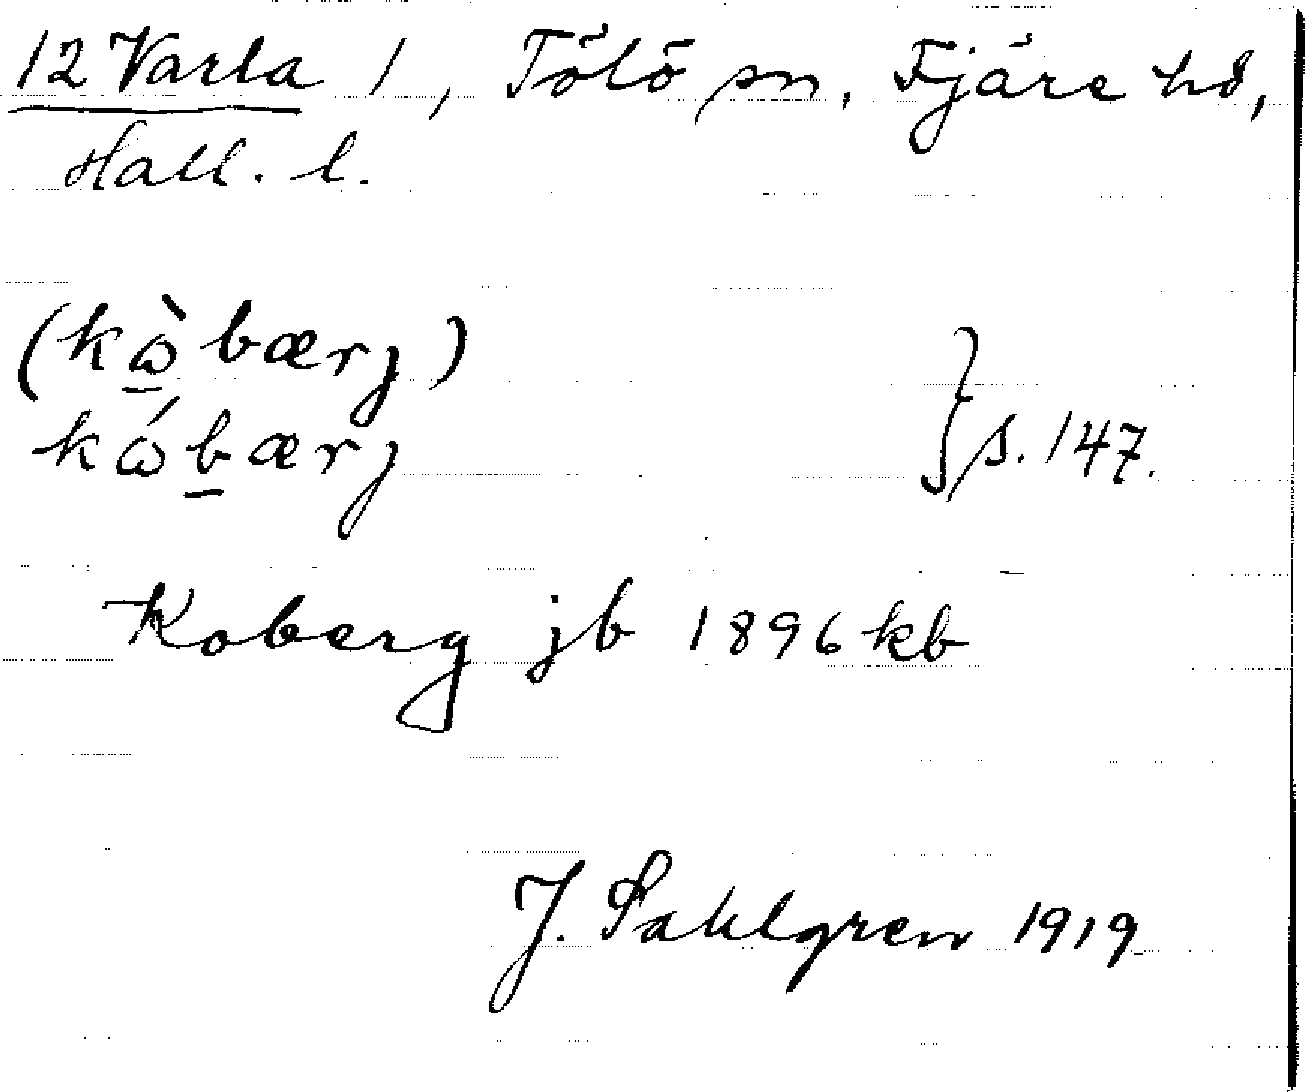 12 Varla 1, Tölö sn, Fjäre hd,
Hall. l.
(kὼ̱bærj)
kώḇærj } s. 147.
Koberg jb 1896 kb
J. Sahlgren 1919